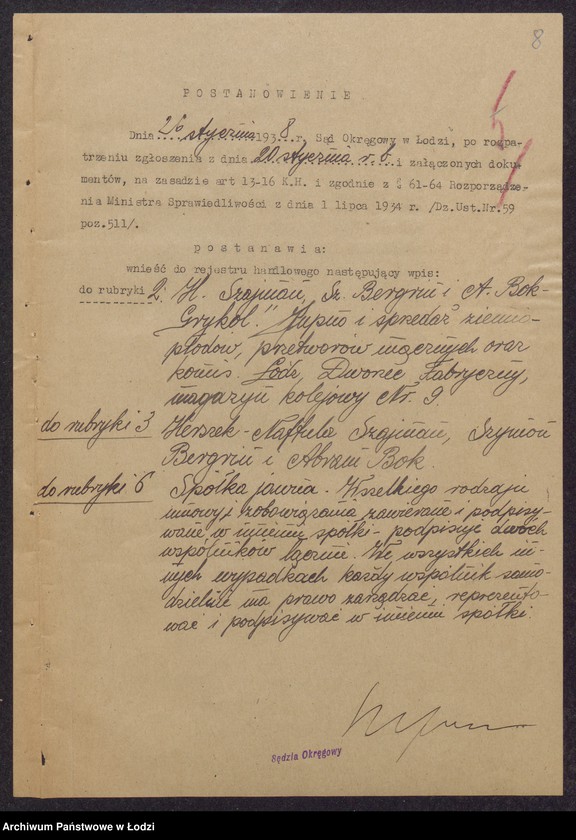 8
5/1
POSTANOWIENIE
Dnia 26 stycznia 1938 r. Sąd Okręgowy w Łodzi, po rozpa-
trzeniu zgłoszenia z dnia 20 stycznia r.b. i załączonych doku-
mentów, na zasadzie art 13-16 K.H. i zgodnie z § 61-64 Rozporządze-
nia Ministra Sprawiedliwości z dnia 1 lipca 1934 r. /Dz.Ust.Nr.59
poz.511/.
postanawia:
wnieść do rejestru handlowego następujący wpis:
do rubryki 2. H. Szajman, Sz. Bergrin i A. Bok-
"Grykol." Kupno i sprzedaż ziemio-
płodów, przetworów mącznych oraz
komis. Łódź, Dworzec Fabryczny,
magazyn kolejowy Nr. 9.
do rubryki 3 Herszek-Naftela Szajman, Szymon
Bergrin i Abram Bok.
do rubryki 6 Spółka jawna. Wszelkiego rodzaju
umowy i zobowiązania zawierane i podpisy-
wane w imieniu spółki - podpisuje dwóch
wspólników łącznie. We wszystkich in-
nych wypadkach każdy wspólnik samo-
dzielnie ma prawo zarządzać, reprezento-
wać i podpisywać w imieniu spółki.
Sędzia Okręgowy
Archiwum Państwowe w Łodzi